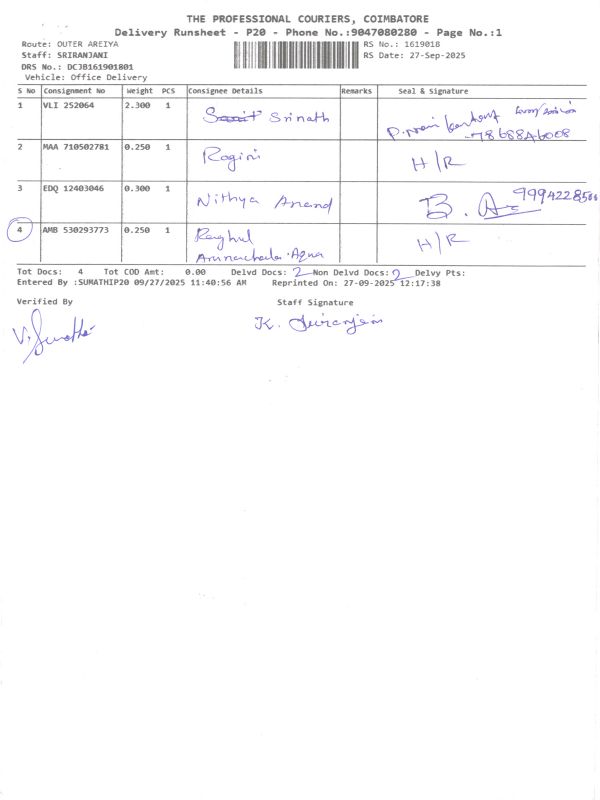 THE PROFESSIONAL COURIERS, COIMBATORE
Delivery Runsheet - P20 - Phone No.:9047080280 - Page No.:1
Route: OUTER AREIYA RS No.: 1619018
Staff: SRIRANJANI RS Date: 27-Sep-2025
DRS No.: DCJB161901801
Vehicle: Office Delivery
S No Consignment No Weight PCS Consignee Details Remarks Seal & Signature
1 VLI 252064 2.300 1 Srinath
7868846008
2 MAA 710502781 0.250 1 Ragini H/R
3 EDQ 12403046 0.300 1 Nithya Anand B.
4 AMB 530293773 0.250 1 Raghul H/R
Tot Docs: 4 Tot COD Amt: 0.00 Delvd Docs: 2 Non Delvd Docs: 2 Delvy Pts:
Entered By :SUMATHIP20 09/27/2025 11:40:56 AM Reprinted On: 27-09-2025 12:17:38
Verified By Staff Signature
V. Sumathi K.